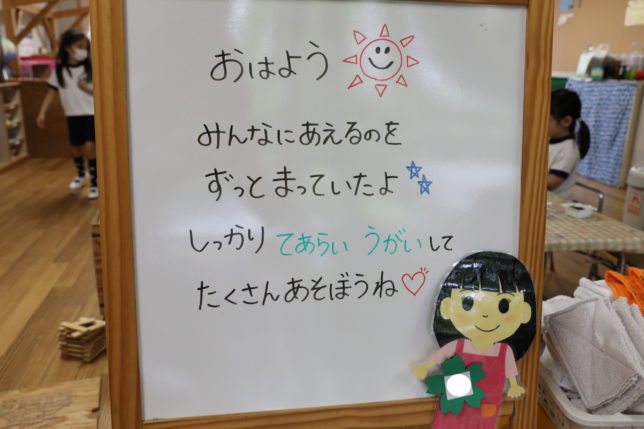 おはよう
みんなにあえるのを
ずっとまっていたよ
しっかり てあらい うがいして
たくさんあそぼうね